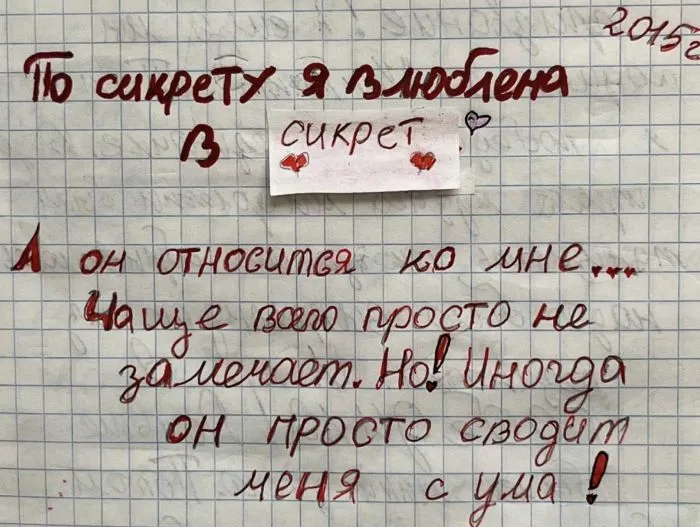 2015г
По сикрету я влюблена
в сикрет
А он относится ко мне...
Чаще всего просто не
замечает. Но! Иногда
он просто сводит
меня с ума!